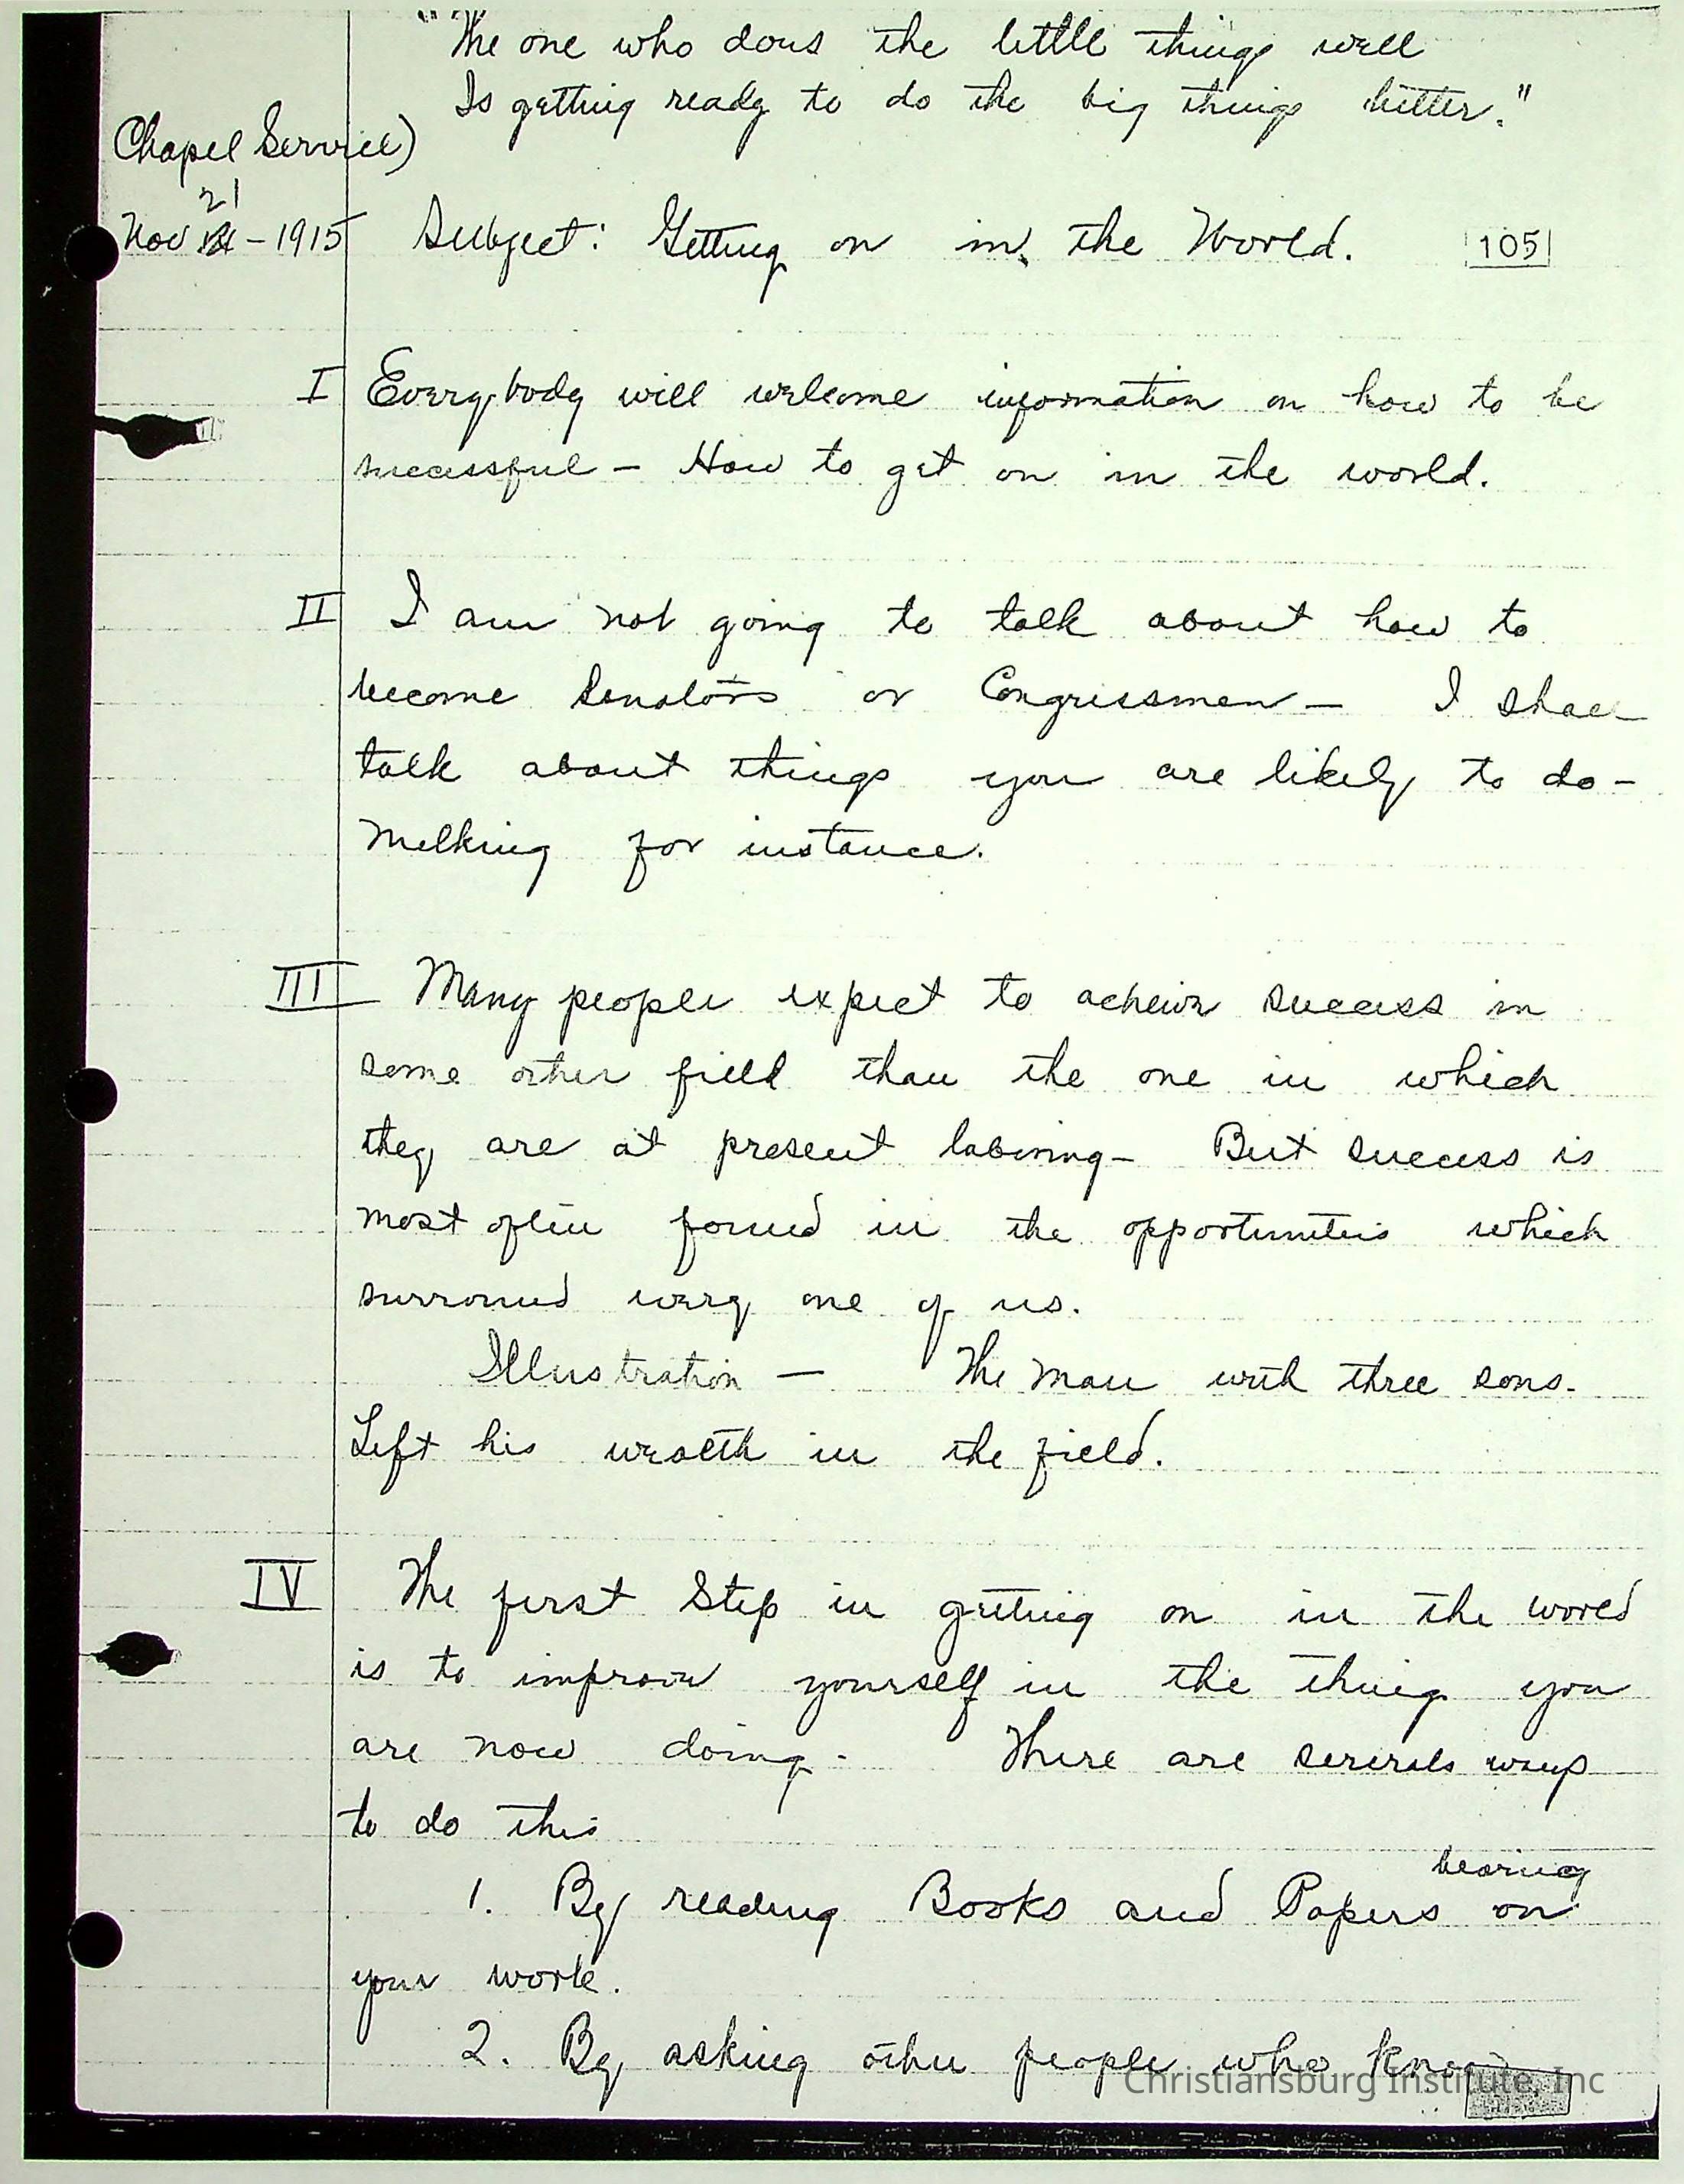 "The one who does the little things well
Is getting ready to do the big things better."
Chapel Service)
21
Nov - 1915
Subject: Getting on in the World.
105
I Everybody will welcome information on how to be
successful - How to get on in the world.
II I am not going to talk about how to
become Senators or Congressmen - I shall
talk about things you are likely to do -
Melking for instance.
III Many people expect to acheive success in
some other field than the one in which
they are at present laboring - But success is
most often found in the opportunities which
surround every one of us.
Illustration - The man with three sons.
Left his wealth in the field.
IV The first Step in getting on in the world
is to improve yourself in the things you
are now doing - There are severals ways
to do this
bearing
1. By reading Books and Papers on
your work.
2. By asking other people who know
Christiansburg Institute, Inc